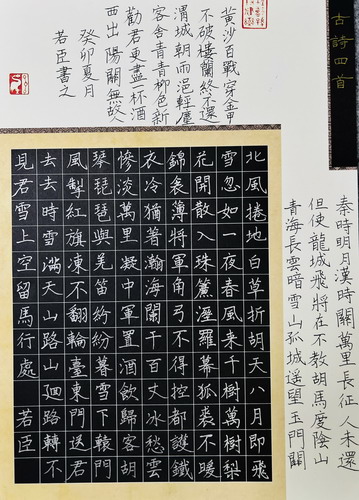 古詩四首
秦時明月漢時關萬里長征人未還
但使龍城飛將在不教胡馬度陰山
青海長雲暗雪山孤城遙望玉門關
黃沙百戰穿金甲
不破樓蘭終不還
渭城朝雨浥輕塵
客舍青青柳色新
勸君更盡一杯酒
西出陽關無故人
癸卯夏月
若臣書之
北風捲地白草折胡天八月即飛
雪忽如一夜春風來千樹萬樹梨
花開散入珠簾溼羅幕狐裘不暖
錦衾薄將軍角弓不得控都護鐵
衣冷猶著瀚海闌干百丈冰愁雲
慘淡萬里凝中軍置酒飲歸客胡
琴琵琶與羌笛紛紛暮雪下轅門
風掣紅旗凍不翻輪臺東門送君
去去時雪滿天山路山迴路轉不
見君雪上空留馬行處 若臣